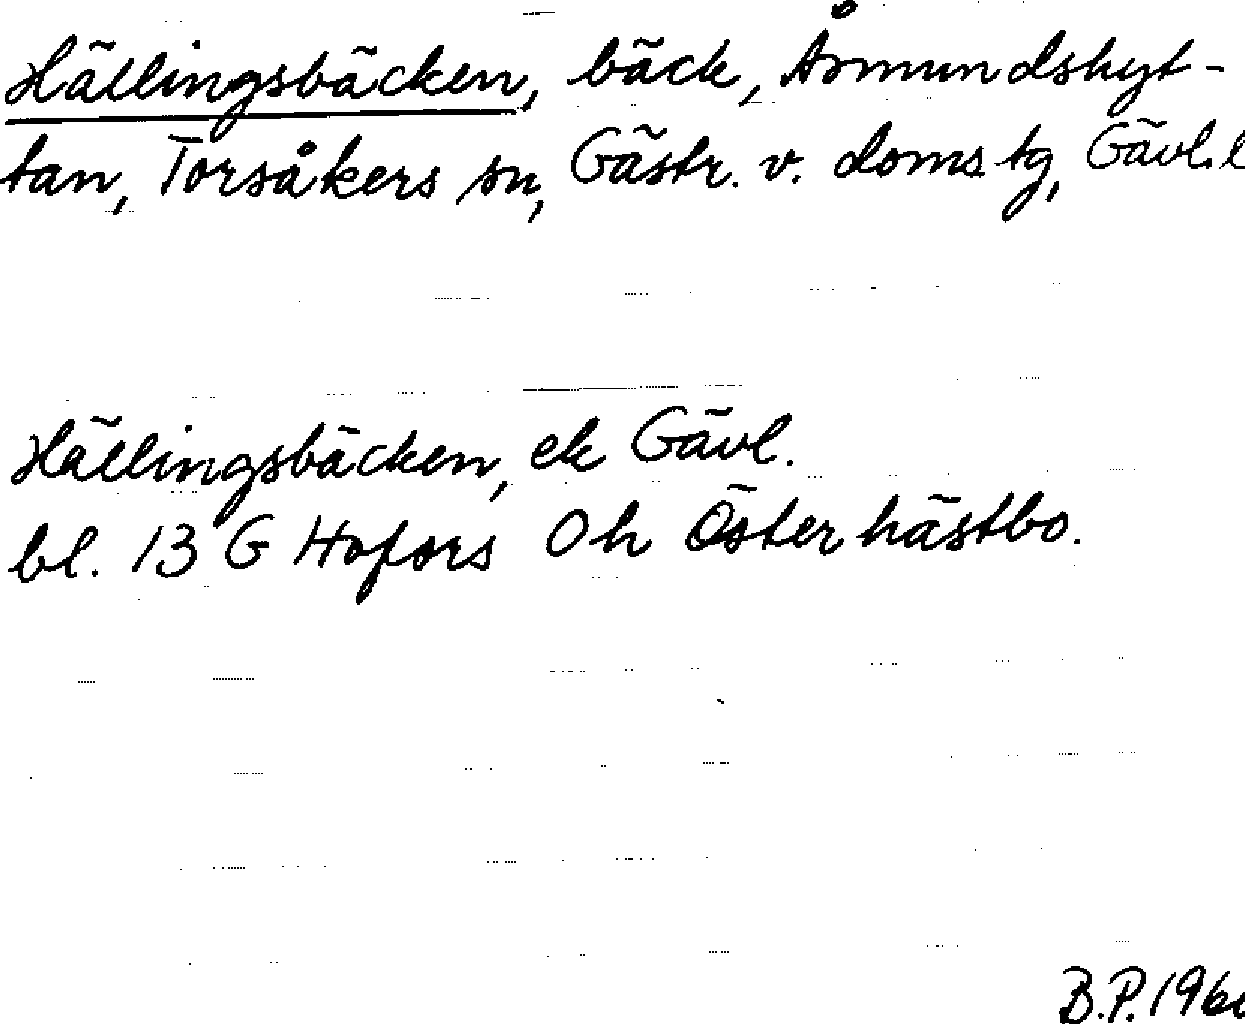 Hällingsbäcken, bäck, Åsmundshyt-
tan, Torsåkers sn, Gästr. v. doms. tg, Gävl. l
Hällingsbäcken, ek Gävl.
bl. 13 G Hofors Oh Österhästbo.
B.P. 196